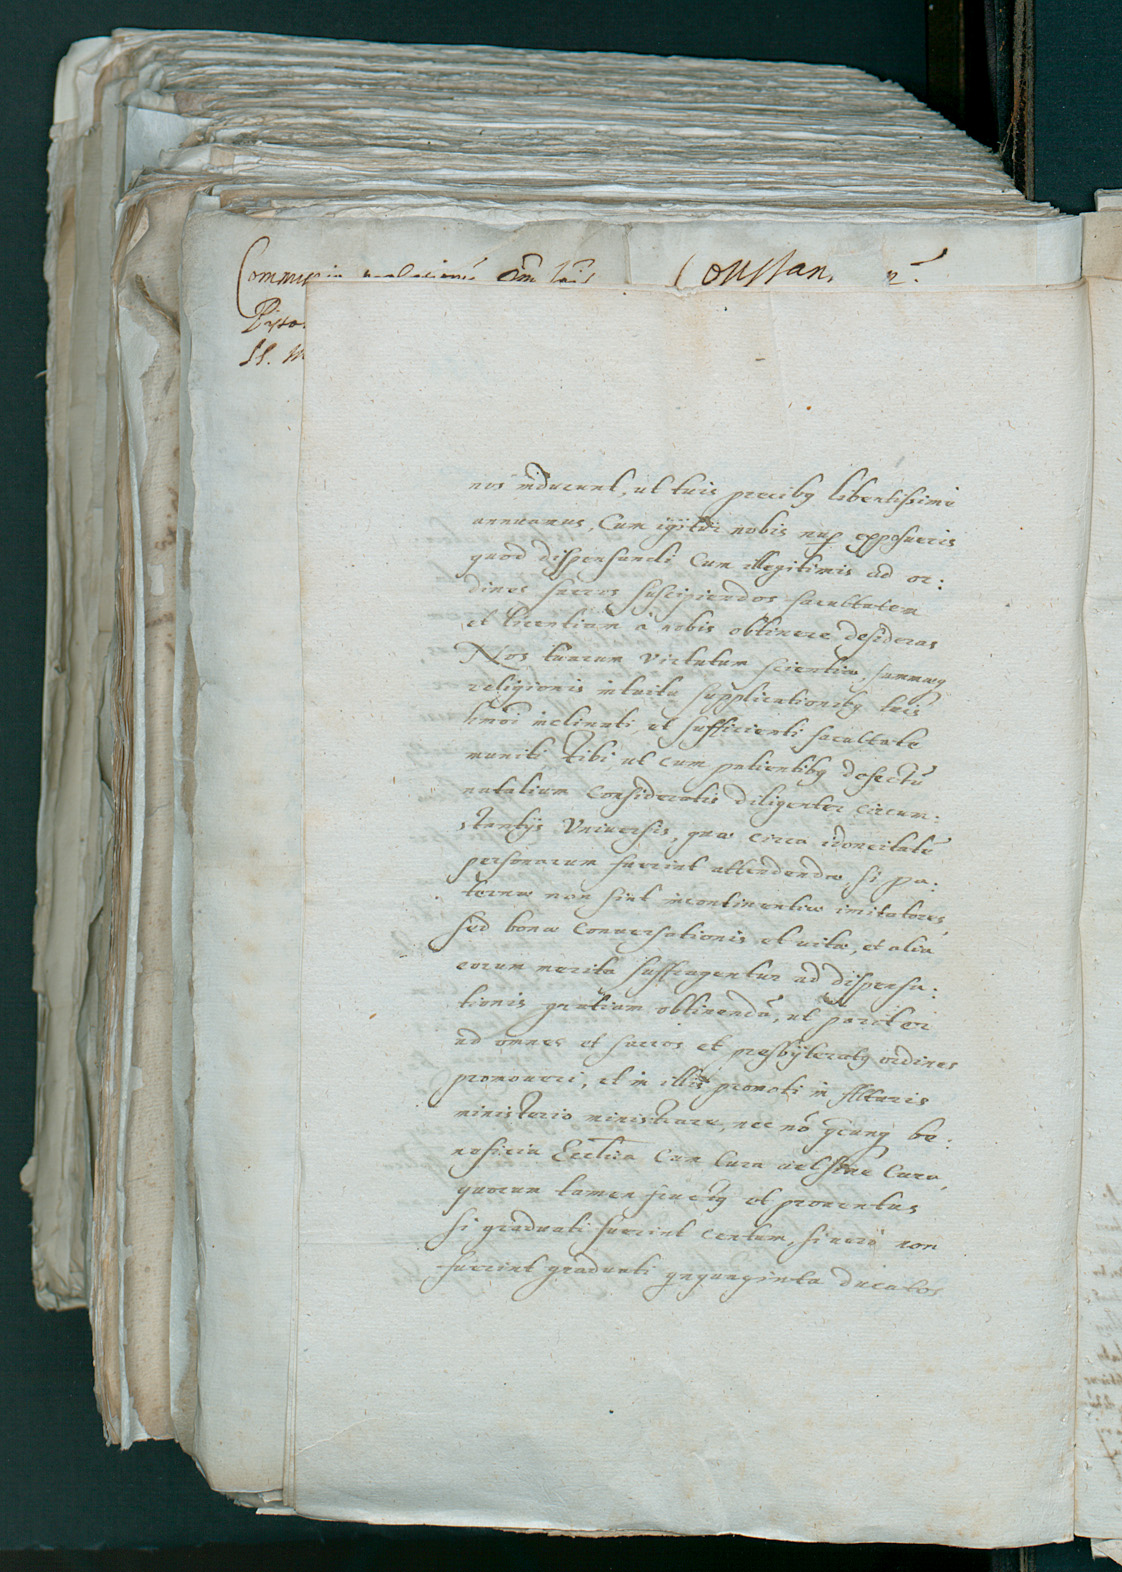 Constan. 2.
nos inducunt, ut tuis precibq libentissime
annuamus, Cum igitur nobis nup exposueris
quod dispensandi Cum illegitimis ad or:
dines sacros suscipiendos facultatem
et licentiam à nobis obtinere desideras
Nos tuarum Virtutum scientiæ, summæq
religionis intuitu supplicationibq tuis
hmõi inclinati, et sufficienti facultate
muniti Tibi, ut cum patientibq defectũ
natalium Consideratis diligenter circum:
stantijs Vniuersis, quæ circa idoneitatẽ
personarum fuerint attendendæ, si pa:
ternæ non sint incontinentiæ imitatores,
sed bonæ Conuersationis et uitæ, et alia
eorum merita suffragentur ad dispensa:
tionis gratiam obtinendã, ut pariter
ad omnes et sacros et presbÿteratq ordines
promoueri, et in illis promoti in Altaris
ministerio ministrare, nec nõ qcunq be:
neficia Eccl̃ia Cum Cura uel sine Cura,
quorum tamen fructq et prouentus
si graduati fuerint Centum, si uerò non
fuerint graduati qnquaginta ducatos